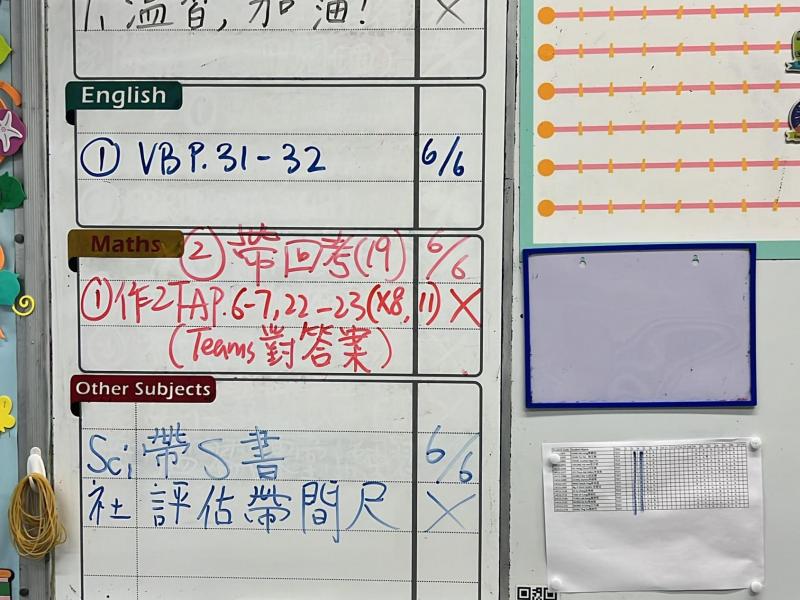 1. 溫習, 加油! X
English
① VB P.31-32 6/6
Maths
② 帶回考(19) 6/6
①作2TA P.6-7, 22-23(X8, 11) X
(Teams對答案)
Other Subjects
Sci 帶S書 6/6
社 評估帶間尺 X